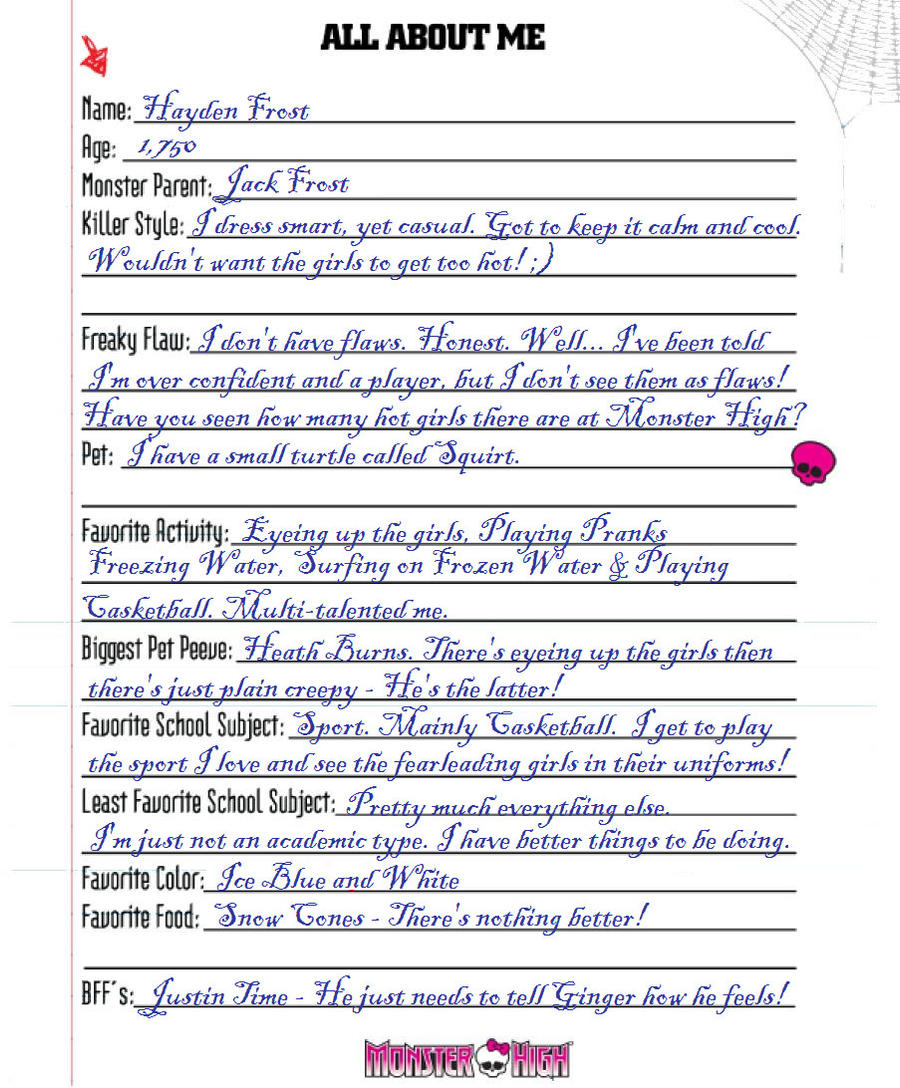 ALL ABOUT ME
Name: Hayden Frost
Age: 1,750
Monster Parent: Jack Frost
Killer Style: I dress smart, yet casual. Got to keep it calm and cool.
Wouldn't want the girls to get too hot! ;)
Freaky Flaw: I don't have flaws. Honest. Well... I've been told
I'm over confident and a player, but I don't see them as flaws!
Have you seen how many hot girls there are at Monster High?
Pet: I have a small turtle called Squirt.
Favorite Activity: Eyeing up the girls, Playing Pranks
Freezing Water, Surfing on Frozen Water & Playing
Casketball. Multi-talented me.
Biggest Pet Peeve: Heath Burns. There's eyeing up the girls then
there's just plain creepy - He's the latter!
Favorite School Subject: Sport. Mainly Casketball. I get to play
the sport I love and see the fearleading girls in their uniforms!
Least Favorite School Subject: Pretty much everything else.
I'm just not an academic type. I have better things to be doing.
Favorite Color: Ice Blue and White
Favorite Food: Snow Cones - There's nothing better!
BFF's: Justin Time - He just needs to tell Ginger how he feels!
MONSTER HIGH